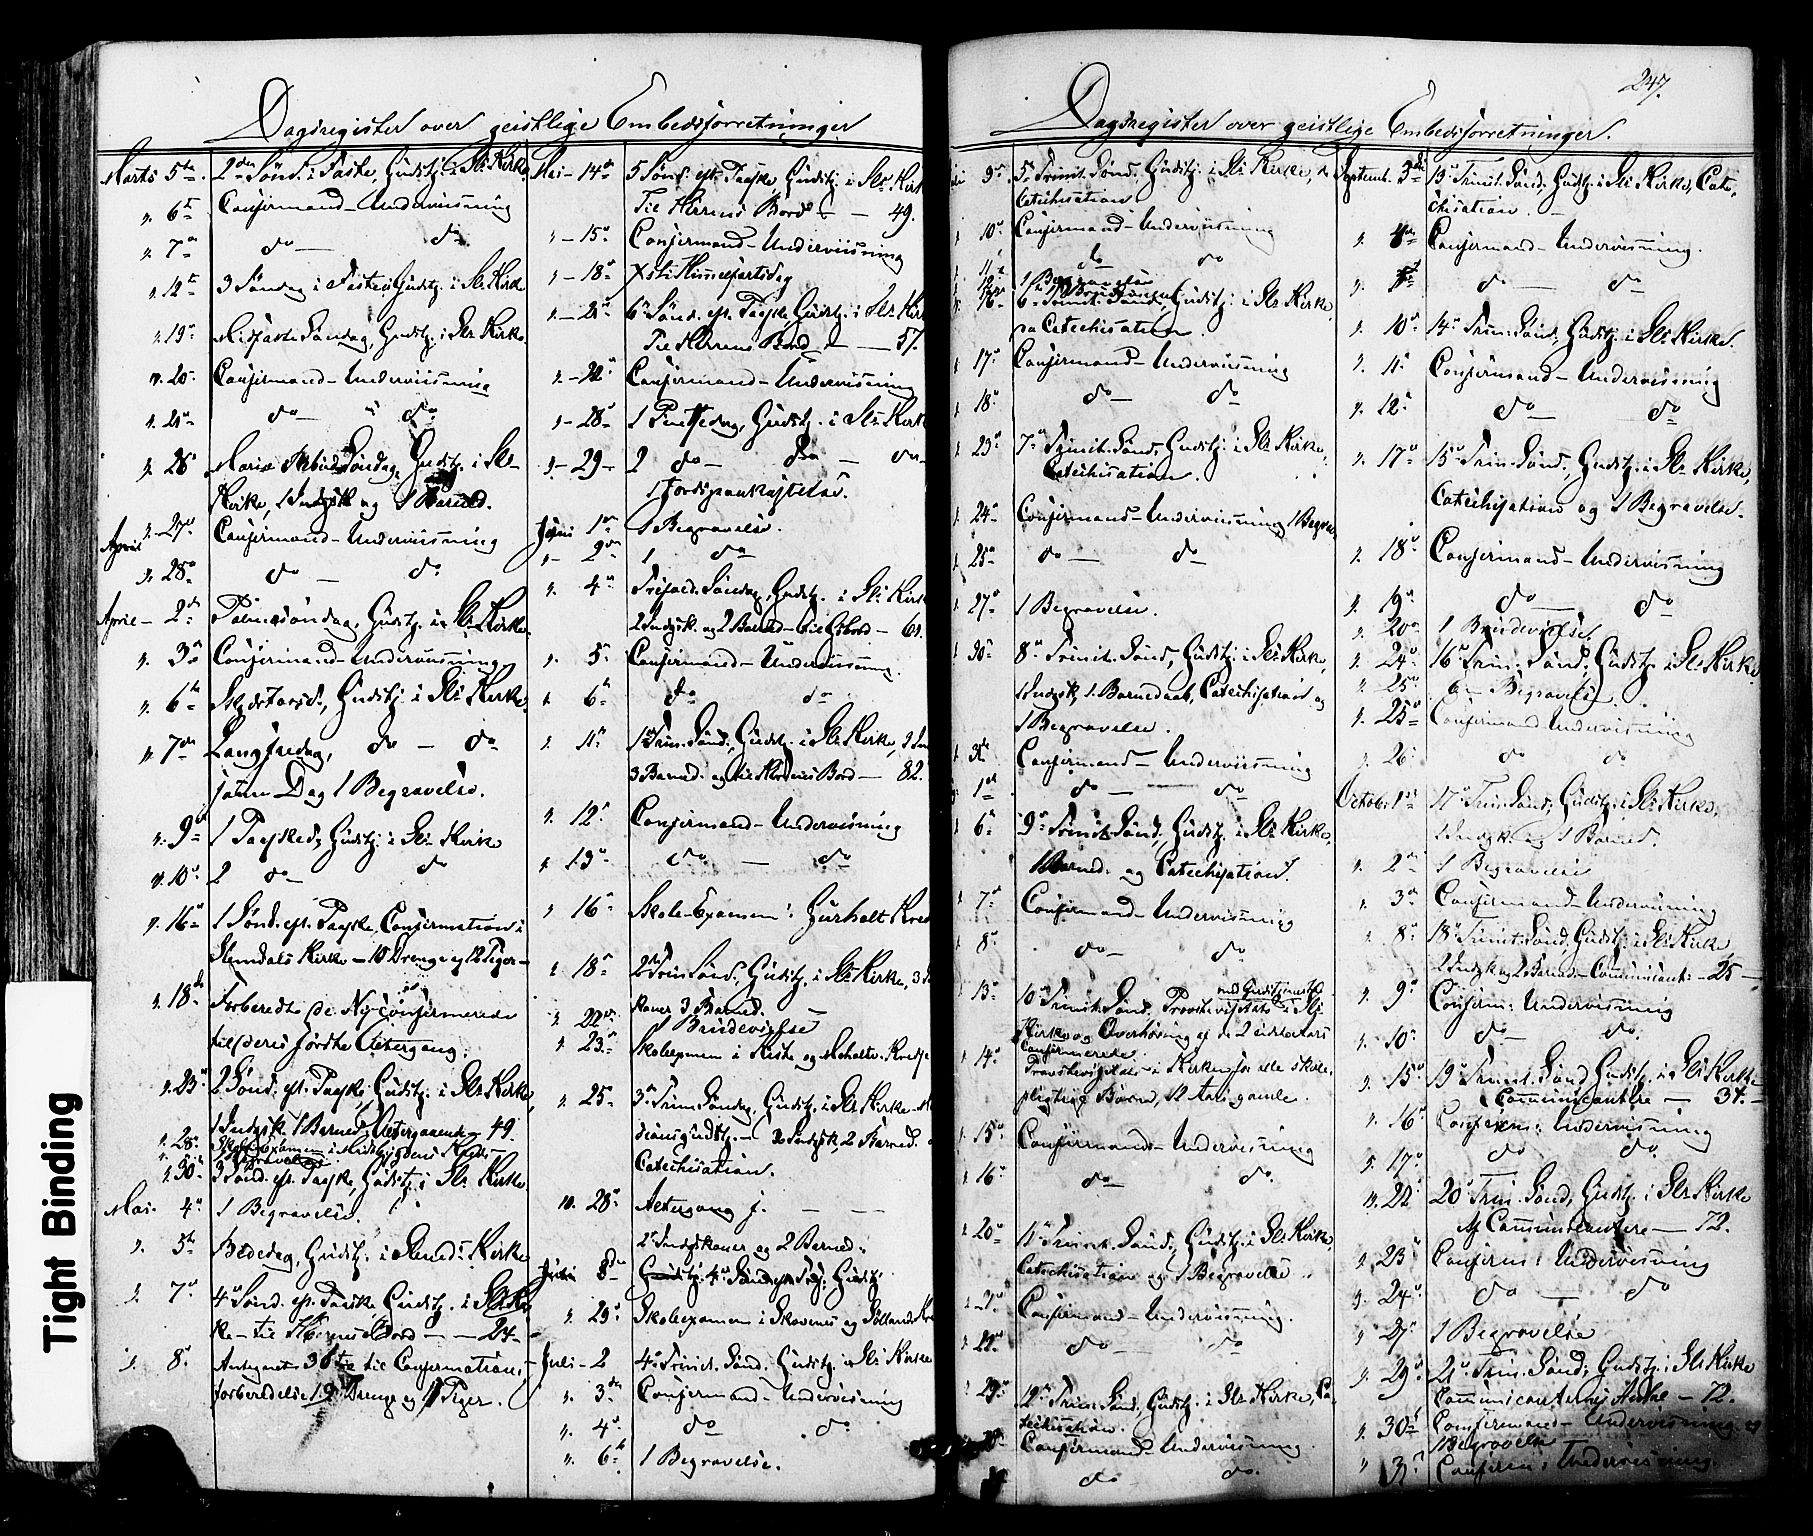 Dagsregister over geistlige Embedsforretninger
Marts 5te 2den Sønd. i Faste, Gudstj. i Sls Kirke.
" 6te Confirmand-Underviisning
" 7de do — do
" 12te 3 Søndag i Fasten Gudstj. i Sls Kirke
" 19de Midfaste Søndag, Gudstj. i Sls Kirke.
" 20 Confirmand-Underviisning
" 21 do — " do
" 26 Mariæ Søndag, Gudstj. i Sls
Kirke, 1 Indgsk og 1 Barned.
" 27 Confirmand-Underviisning
April
" 28 do — do
April — 2den Palmesøndag, Gudstj. i Sls Kirke.
" 3die Confirmand-Underviisning
" 6te Skjærtorsd., Gudstj. i Sls Kirke.
" 7de Langfredag, do — do
samme Dag 1 Begravelse.
" 9de 1 Paasked. Gudstj. i Sls Kirke
" 10 2 do — do
" 16 1 Sønd. eft. Paaske, Confirmation i
Slemdals Kirke — 15 Drenge og 12 Piger —
" 18de Forberedte de Ny-Confirmerede
til deres første Altergang.
" 23 2 Sønd. eft. Paaske, Gudstj. i Sls Kirke,
1 Indgsk. 1 Barned. Altergaaende — 49.
" 28 Skoleexamen i Midtbygdens Kreds —
" 30 3 Sønd. eft. Paaske, Gudstj. i Sls Kirke.
Mai. 4de 1 Begravelse.
" 5te Bededag, Gudstj. i Slemds Kirke
" 7de 4de Sønd. eft. Paaske, Gudstj. i Sls Kir
ke — til Herrens Bord — 24 —
" 8 Antegnet til Confirmations-
forberedelse 19 Drenge og Piger.
Mai — 14de 5 Sønd. eft. Paaske, Gudstj. i Sls Kirk
Til Herrens Bord — 49.
" — 15 Confirmand-Underviisning
" — 18 Xsti Himmelfartsdag
" — 21 6te Sønd. eft. Paaske Gudstj. i Sls Kir
Til Herrens Bord — 57.
" — 22 Confirmand-Underviisning
" — 28 1 Pintsedag, Gudstj. i Sls Kirk
" — 29 — 2 do — do — do —
1 Jordspaakastelse.
Juni 1ste 1 Begravelse.
" — 2den 1 do
" 4de Trefold. Søndag, Gudstj. i Sls Kirk
2 Indgsk. og 2 Barned — til Gsbord — 61.
" 5te Confirmand-Underviisning
" 6te do do
" 11te 1ste Trin. Sønd., Gudstj. i Sls Kirke,
3 Barned. og til Herrens Bord — 82.
" 12te Confirmand-Underviisning
" 13 do — do
" 16 Skole-Examen i Gurholt Kred
" 18 2den Trin. Sønd., Gudstj. i Sls Kirke, 3
koner 3 Barned.
" 22de 1 Brudevielse
" 23 Skoleexamen i Kiste og Moholts Kredse
" 25 3die Trin. Søndag, Gudstj. i Sls Kirke
Catechisation.
" 28 Altergang
2 Indgskoner og 2 Barned.
Juli 8de Gudstj. 4de Søndag
" 23 Skoleexamen i Skovenes og Solland
Juli — 2 4de Trinit. Sønd. Gudstj. i Sls Kirke
" 3die Confirmand-Underviisning
" 4 do do
" 6te 1 Begravelse.
247.
Dagsregister over geistlige Embedsforretninger.
9de 5te Trinit. Sønd. Gudstj. i Sls Kirke,
Catechisation
10 Confirmand-Underviisning
11 do do
12 1 Begravelse
16 6te Trinit. Søndag, Gudstj. i Sls Kirke,
og Catechisation.
17 Confirmand-Underviisning
18 do — do
23 7de Trinit. Sønd., Gudstj. i Sls Kirke,
Catechisation.
24 Confirmand-Underviisning, 1 Begrav
25 do — do
27 1 Begravelse.
30 8de Trinit. Sønd, Gudstj. i Sls Kirke,
1 Indgsk, 1 Barnedaab, Catechisation og
1 Begravelse.
31te Confirmand-Underviisning
1ste do — do
6te 9de Trinit. Sønd, Gudstj. i Sls Kirke,
1 Barned. og Catechisation.
7 Confirmand-Underviisning
8 do — do
13 10de Trinit. Sønd. Provstevisitats i Sls med Gudstjeneste
Kirke og Overhøring af de 2 sidste Aars
Confirmerede.
14 Provstevisitats i Kirken for alle skole-
pligtige Børn, 12 Aars gamle.
15 Confirmand-Underviisning
16 do — do.
20 11te Trinit. Sønd., Gudstj. i Sls Kirke,
Catechisation og 1 Begravelse.
21 Confirmand-Underviisning.
22 do — do
12te Trin. Sønd, Gudstj. i Sls Kirke, Ca-
techisation.
Confirmand-Underviisning.
do — do.
Septemb. 3die 13de Trinit. Sønd. Gudstj. i Sls Kirke, Cate-
chisation. —
" 4de Confirmand-Underviisning.
" 5te do — do
" 10 14de Trin. Sønd, Gudstj. i Sls Kirke.
" 11 Confirmand-Underviisning
" 12 do — do
" 17 15de Trin. Sønd, Gudstj. i Sls Kirke,
Catechisation og 1 Begravelse.
" 18 Confirmand-Underviisning
" 19 do — do
" 20 1 Brudevielse.
" 24 16de Trin. Sønd, Gudstj. i Sls Kirke,
" 25 Begravelse.
" 25 Confirmand Underviisning
" 26 do do
Octob. 1ste 17de Trin. Sønd, Gudstj. i Sls Kirke,
1 Indgsk. og 1 Barned.
" 2den 1 Begravelse
" 3 Confirmand-Underviisning
" 8 18de Trinit. Sønd, Gudstj. i Sls Kirke
2 Indgsk og 2 Barned — Communicant: — 25 —
" 9 Confirm: Underviisning
" 10 do — do.
" 15 19de Trinit. Sønd Gudstj. i Sls Kirke
Communicantere — 34 —
" 16 Confirm: Underviisning
" 17 do do.
" 22 20de Trin. Sønd, Gudstj. i Sls Kirke
Af Communicantere — 72.
" 23 Confirm: Underviisning
" 24 do — do
" 27 1 Begravelse
" 29 21de Trin. Sønd; Gudstj. i Sls Kirke
Communicanternes Antal — 72.
" 30 Confirmand-Underviisning og
1 Begravelse
" 31 Confirm: Underviisning.
Tight Binding